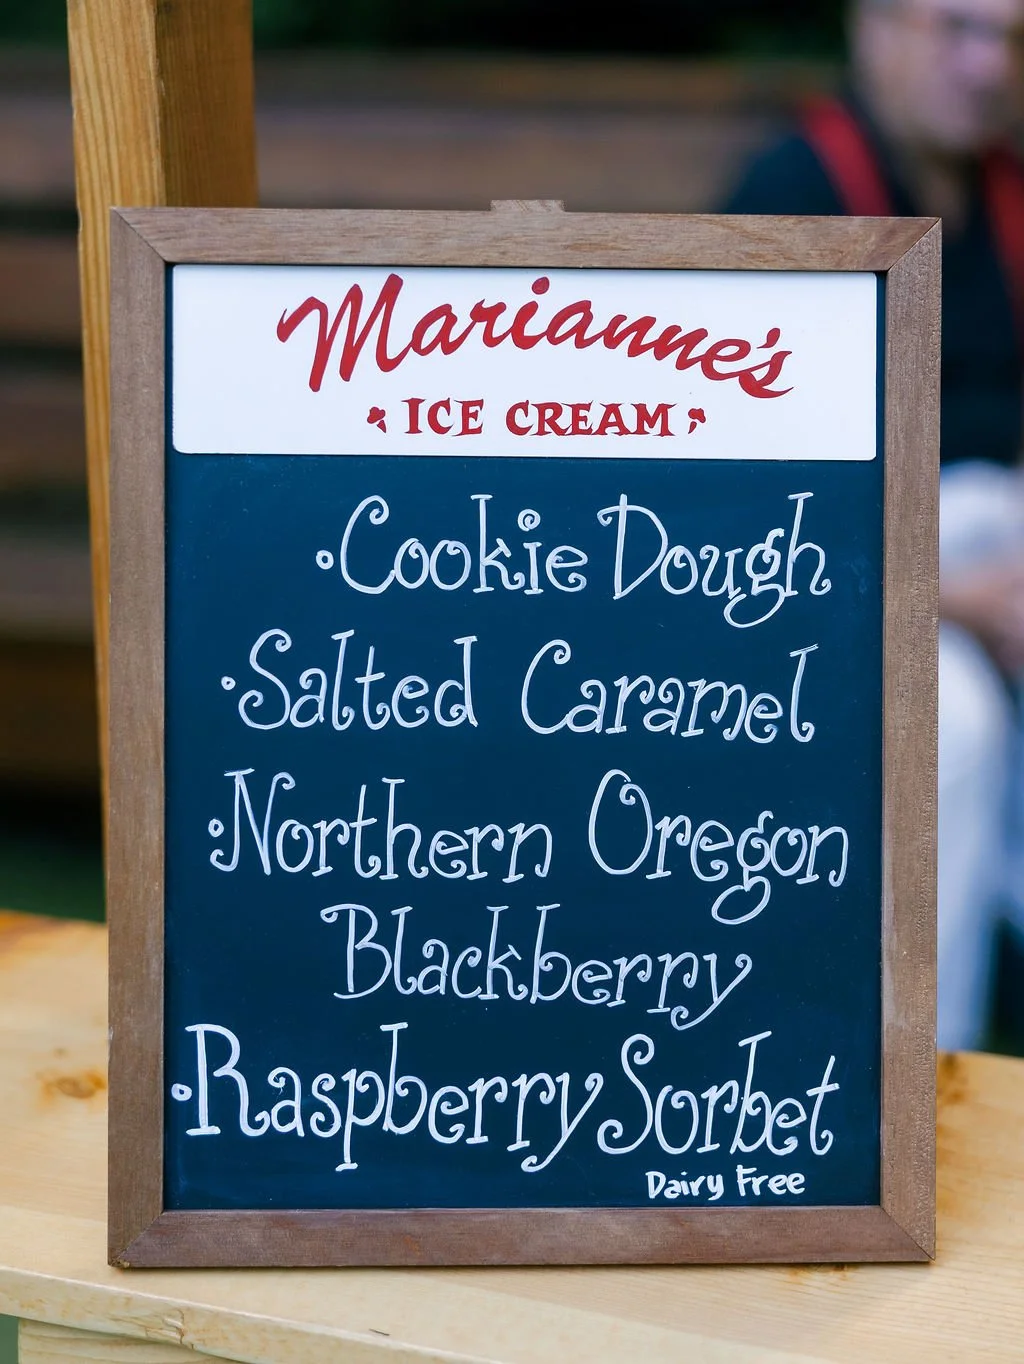 Marianne's
ICE CREAM
•Cookie Dough
•Salted Caramel
•Northern Oregon
Blackberry
•Raspberry Sorbet
Dairy Free